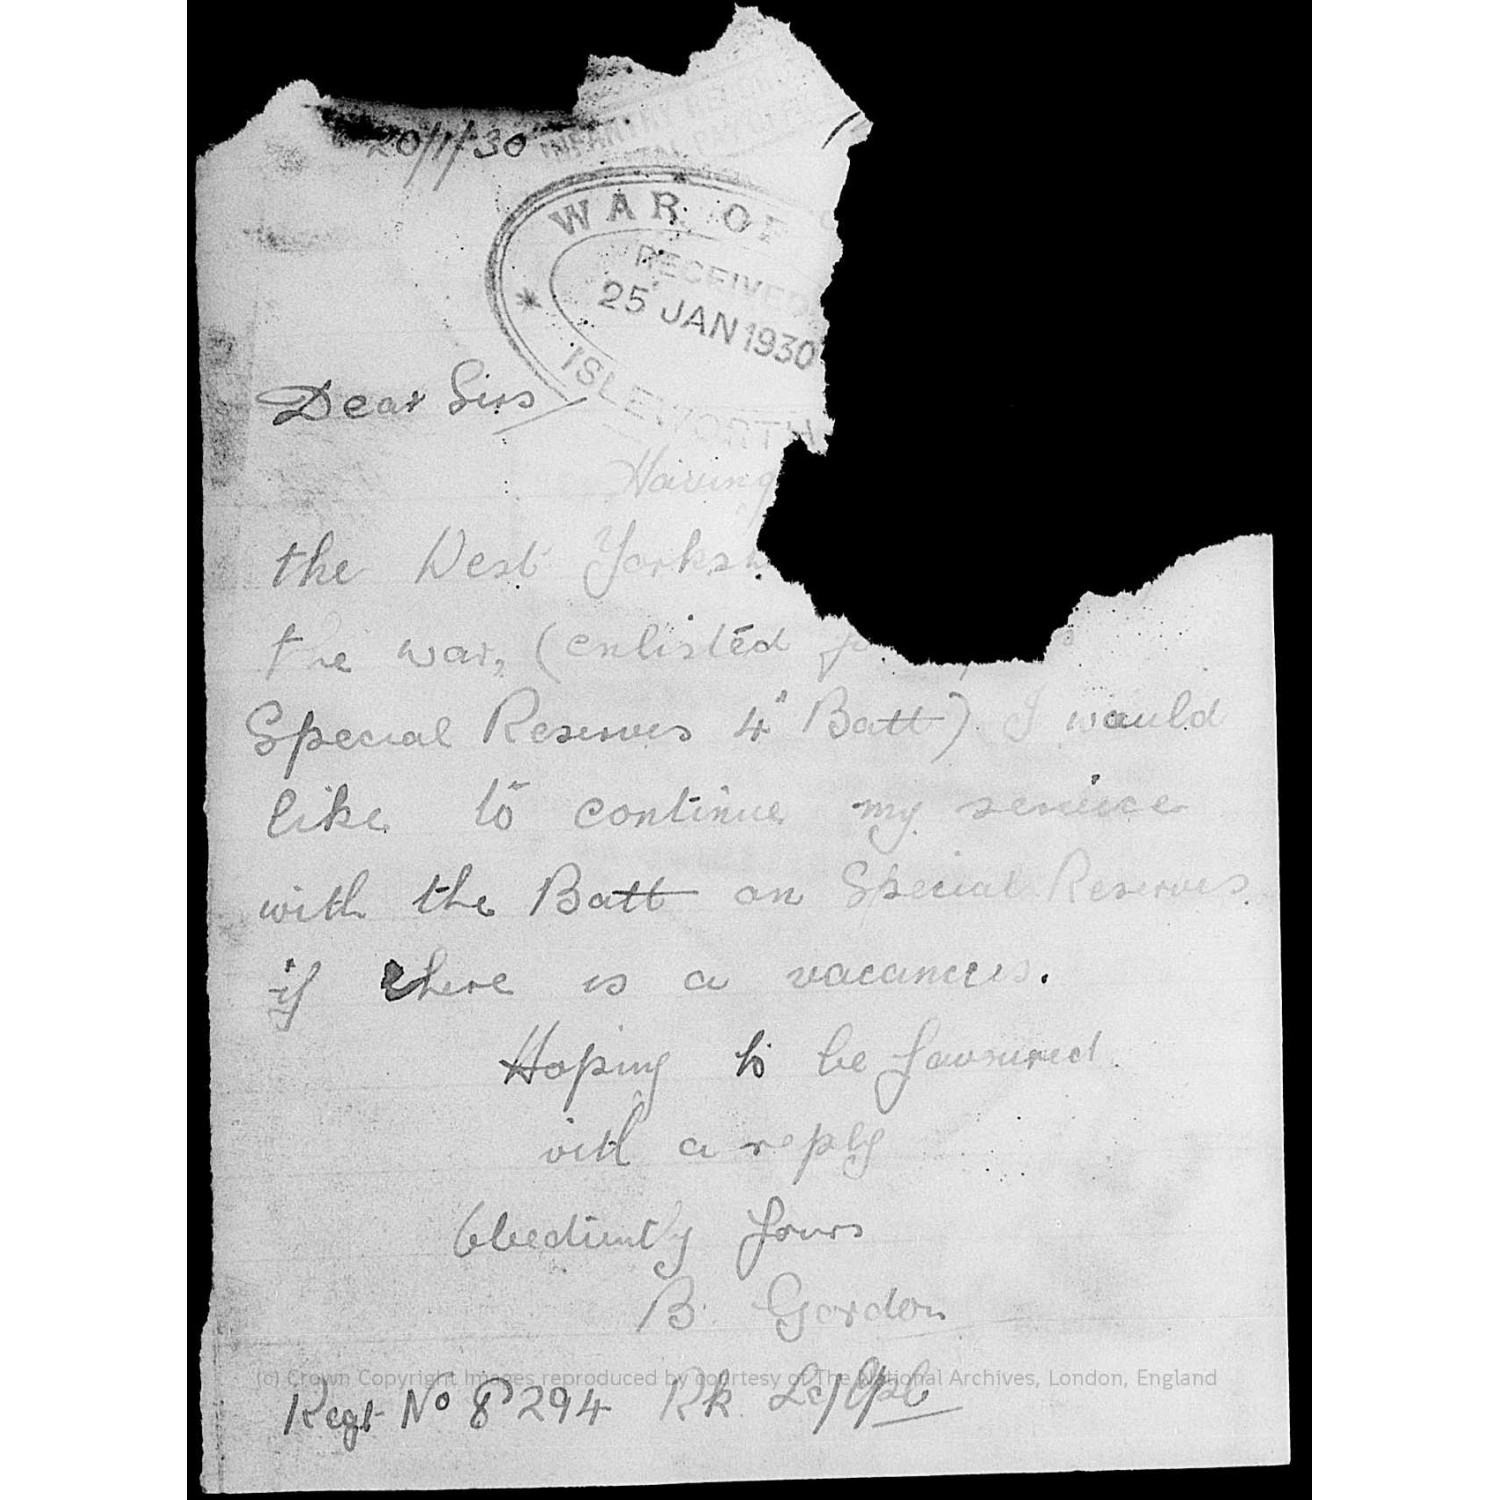 20/1/30
INFANTRY
WAR OF
RECEIVED
25 JAN 1930
ISLEWORTH
Dear Sirs
Having
the West Yorksh
the war, (enlisted
Special Reserves 4" Batt) I would
like to continue my service
with the Batt on Special Reserves
if there is a vacancies.
Hoping to be favoured
with a reply
Obediently Yours
B. Gordon
(c) Crown Copyright Images reproduced by courtesy of The National Archives, London, England
Regt No 8294 Rk L/Cpl